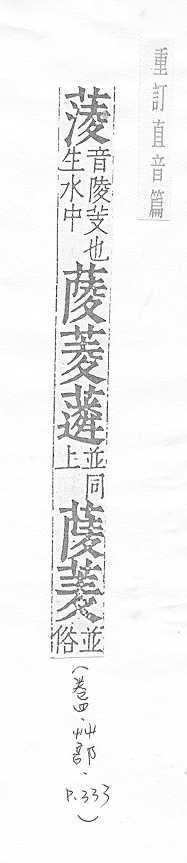 重訂直音篇
蔆音陵芰也生水中䔖菱並同上並俗
(卷四·艸部·P.333)